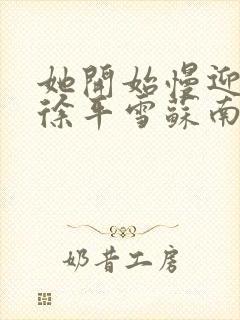 她開始慢迎
徐平雪蘇南
奶昔工房